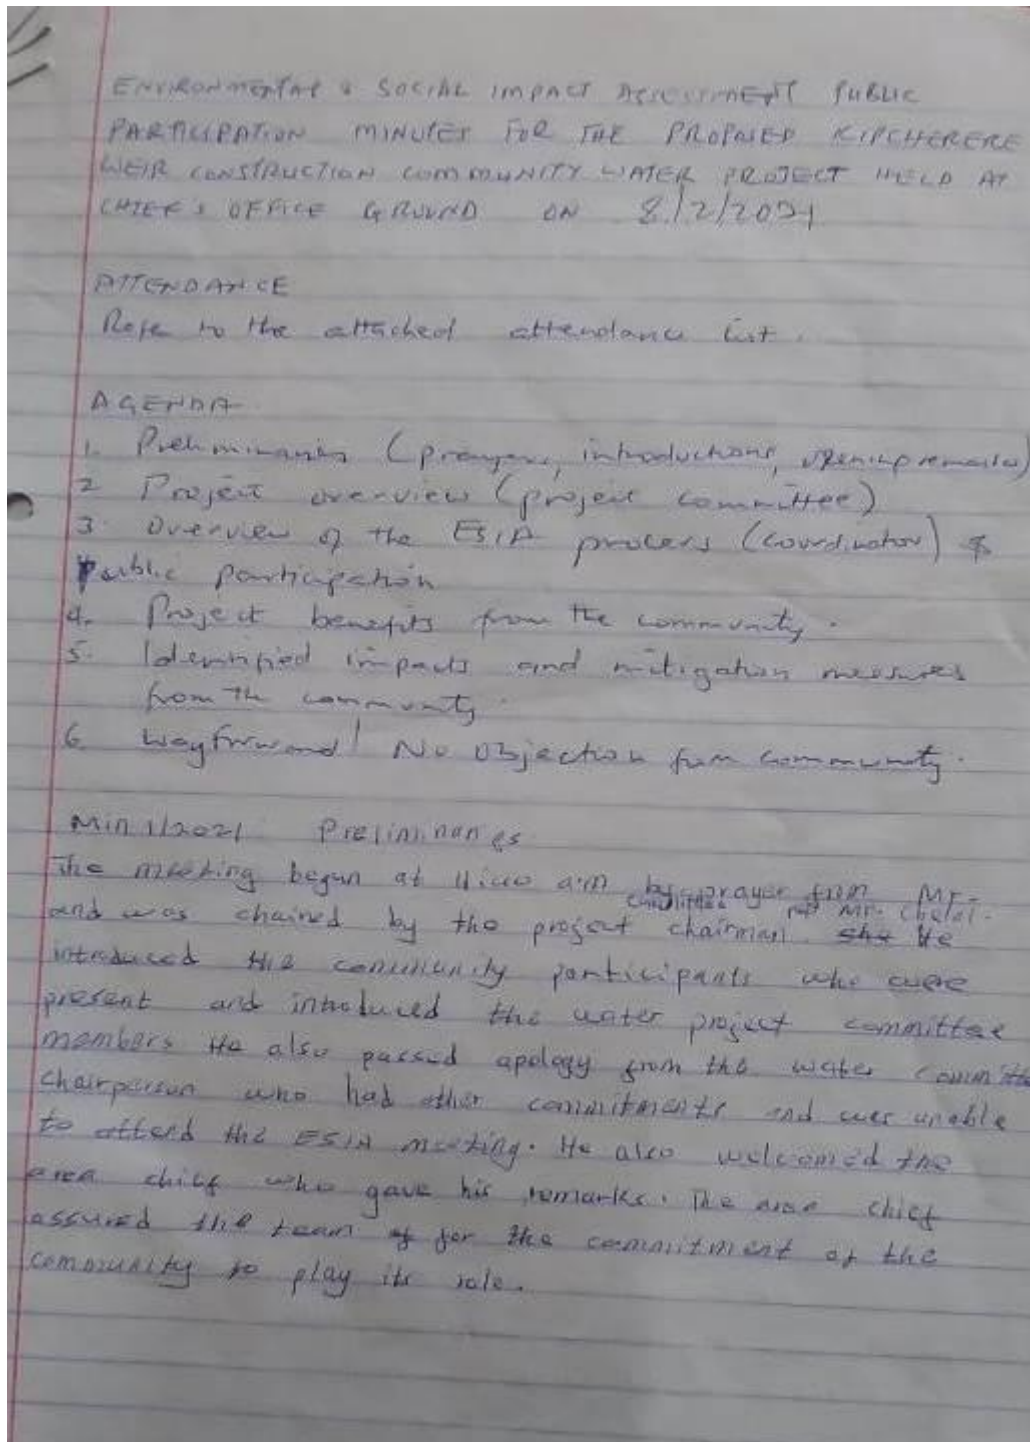 ENVIRONMENTAL & SOCIAL IMPACT ASSESSMENT PUBLIC
PARTICIPATION MINUTES FOR THE PROPOSED KIPCHERERE
WEIR CONSTRUCTION COMMUNITY WATER PROJECT HELD AT
CHIEF'S OFFICE GROUND ON 8/2/2021
ATTENDANCE
Refer to the attached attendance list.
AGENDA
1. Preliminaries (prayers, introductions, opening remarks)
2 Project overview (project committee)
3. Overview of the ESIA process (Coordinator) &
Public participation
4. Project benefits from the community.
5. Identified impacts and mitigation measures
from the community.
6. Way forward / No Objection from community.
Min 1/2021 Preliminaries
The meeting begun at 11:00 a.m by prayer from Mr.
and was chaired by the project chairman rep Mr. She He
introduced the community participants who were
present and introduced the water project committee
members He also passed apology from the water committe
chairperson who had other commitments and was unable
to attend the ESIA meeting. He also welcomed the
area chief who gave his remarks. The area chief
assured the team of for the commitment of the
community to play its role.